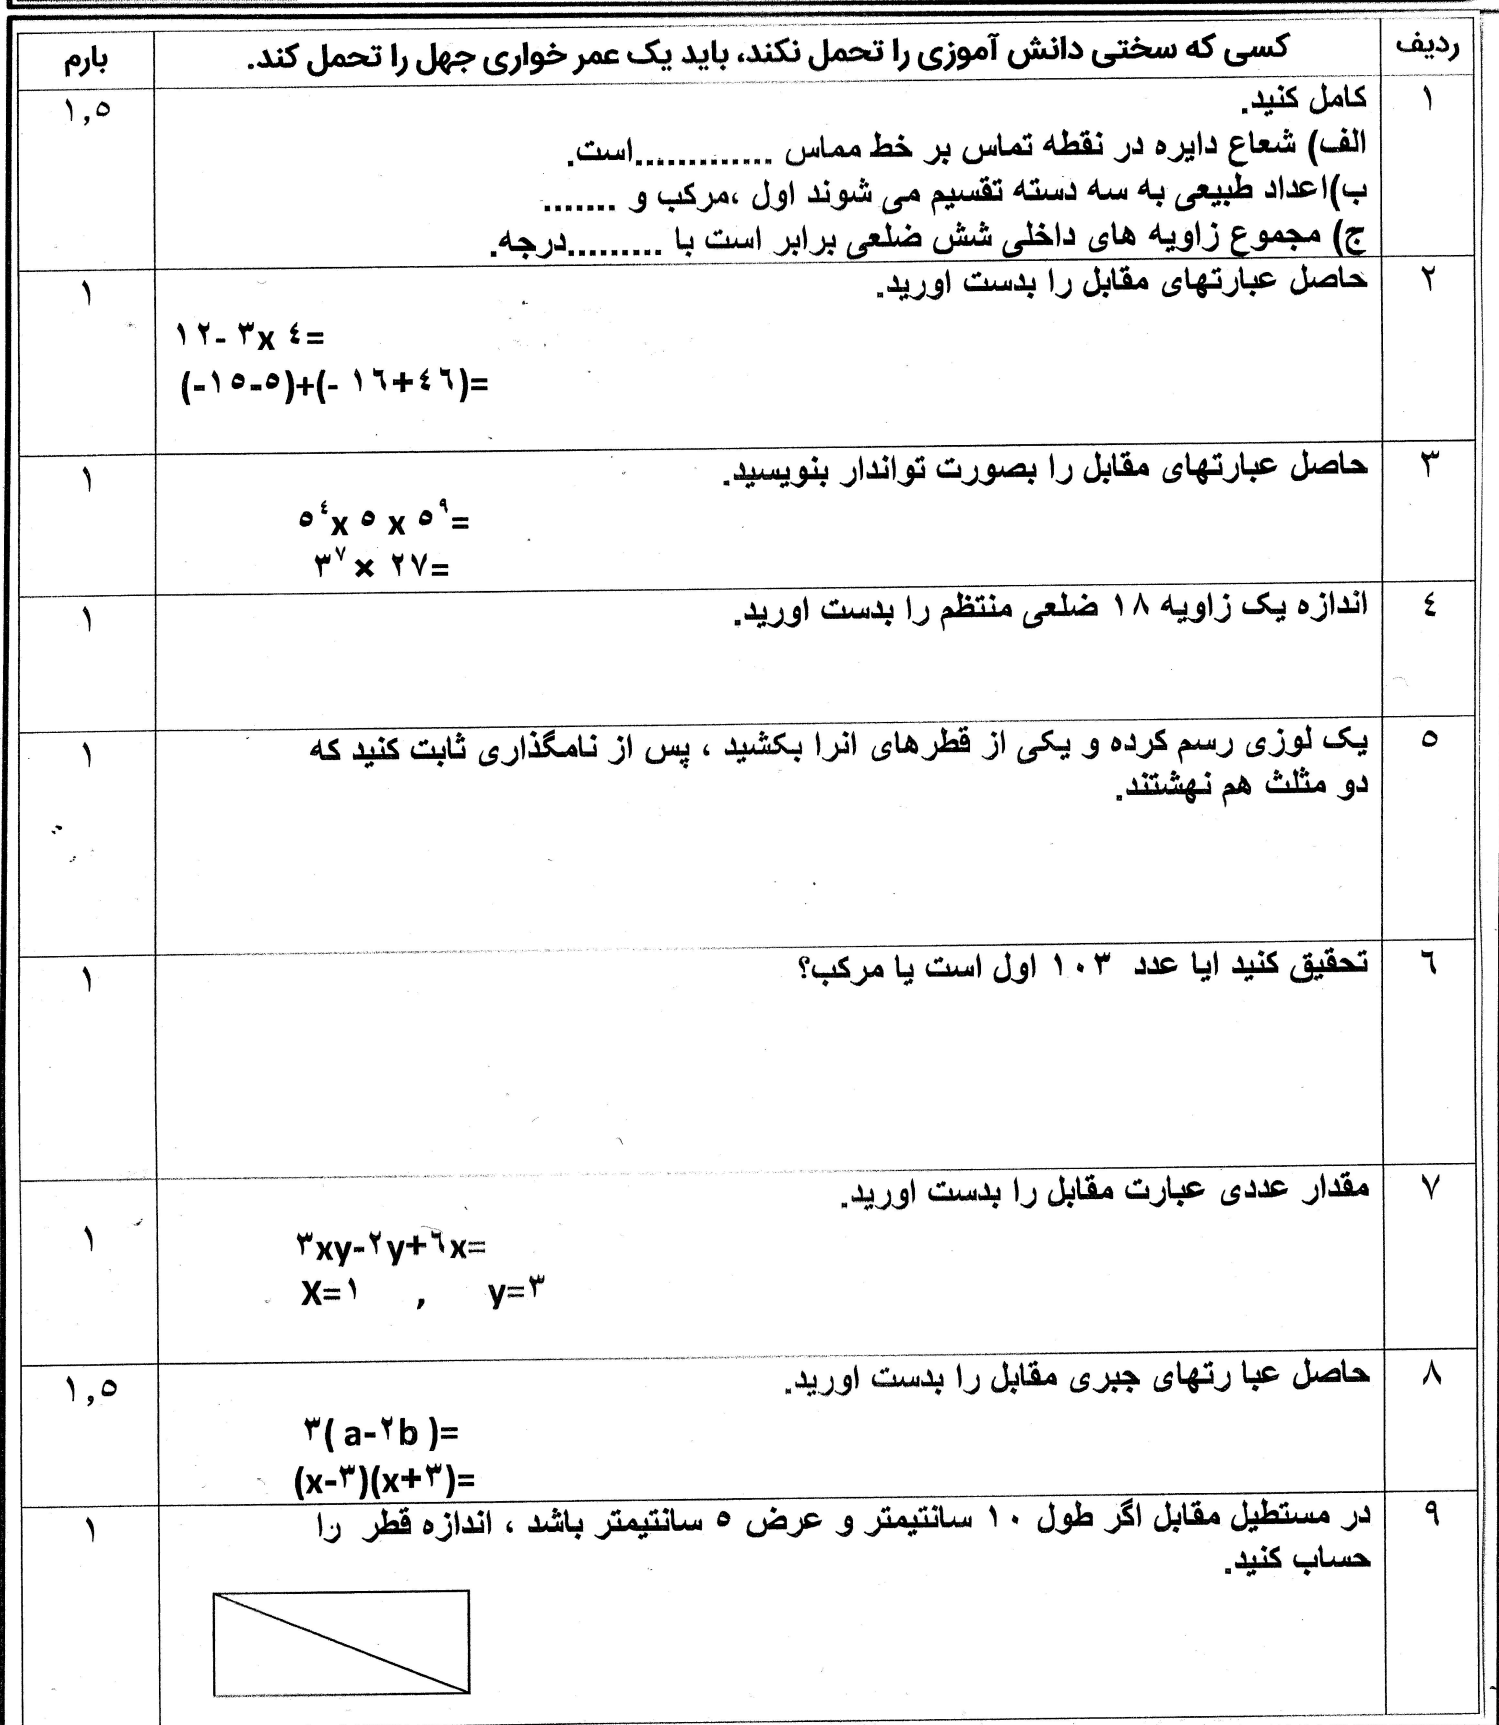 ردیف	کسی که سختی دانش آموزی را تحمل نکند، باید یک عمر خواری جهل را تحمل کند.	بارم
۱	کامل کنید.	۱,۵
الف) شعاع دایره در نقطه تماس بر خط مماس .............است.
ب)اعداد طبیعی به سه دسته تقسیم می شوند اول ،مرکب و .......
ج) مجموع زاویه های داخلی شش ضلعی برابر است با .........درجه.
۲	حاصل عبارتهای مقابل را بدست اورید.	۱
۱۲- ۳x ٤=
(-۱٥-٥)+(- ۱٦+٤٦)=
۳	حاصل عبارتهای مقابل را بصورت تواندار بنویسید.	۱
٥^٤x ٥ x ٥^۹=
۳^۷× ۲۷=
٤	اندازه یک زاویه ۱۸ ضلعی منتظم را بدست اورید.	۱
٥	یک لوزی رسم کرده و یکی از قطرهای انرا بکشید ، پس از نامگذاری ثابت کنید که	۱
دو مثلث هم نهشتند.
٦	تحقیق کنید ایا عدد ۱۰۳ اول است یا مرکب؟	۱
۷	مقدار عددی عبارت مقابل را بدست اورید.	۱
۳xy-۲y+٦x=
X=۱ , y=۳
۸	حاصل عبا رتهای جبری مقابل را بدست اورید.	۱,۵
۳( a-۲b )=
(x-۳)(x+۳)=
۹	در مستطیل مقابل اگر طول ۱۰ سانتیمتر و عرض ٥ سانتیمتر باشد ، اندازه قطر را	۱
حساب کنید.